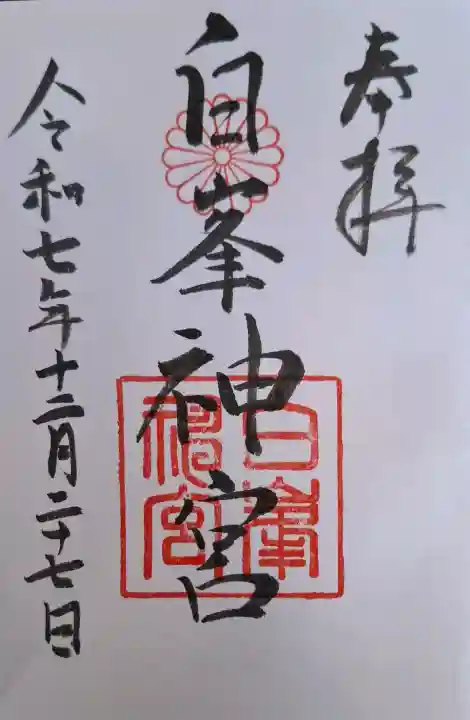 奉拝
白峯神宮
白峯神宮
令和七年十二月二十七日